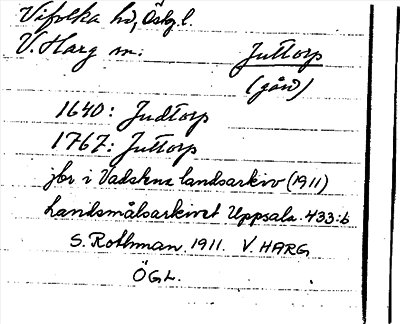 Vifolka hd, Östg l.
V. Harg sn:
Juttorp
(gård)
1640: Judtorp
1767: Juttorp
jbr i Vadstena landsarkiv (1911)
Landsmålsarkivet Uppsala 433:b
S. Rothman 1911. V. HARG
ÖGL.